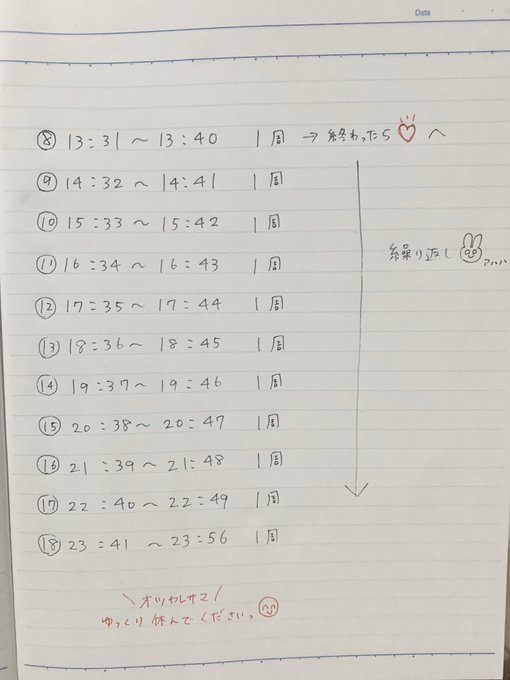 Date
⑧ 13:31 〜 13:40 1周 → 終わったら♡へ
⑨ 14:32 〜 14:41 1周
⑩ 15:33 〜 15:42 1周
繰り返し アハハ
⑪ 16:34 〜 16:43 1周
⑫ 17:35 〜 17:44 1周
⑬ 18:36 〜 18:45 1周
⑭ 19:37 〜 19:46 1周
⑮ 20:38 〜 20:47 1周
⑯ 21:39 〜 21:48 1周
⑰ 22:40 〜 22:49 1周
⑱ 23:41 〜 23:56 1周
\ オツカレサマ /
ゆっくり休んでくださいっ